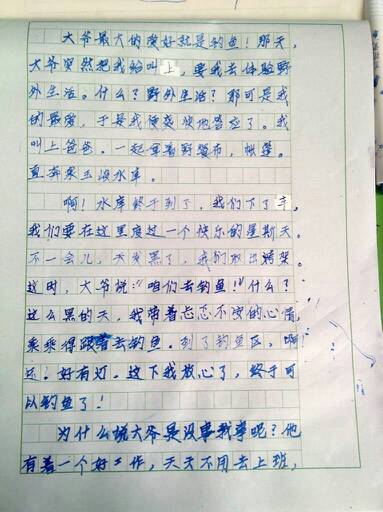 大爷最大的爱好就是钓鱼！那天，
大爷突然把我给叫上，要我去体验野
外生活。什么？野外生活？那可是我
的最爱，于是我便爽快地答应了。我
叫上爸爸，一起拿着野餐布，帐篷。
直奔来三溴水库。
啊！水库终于到了，我们下了车，
我们要在这里度过一个快乐的星期天。
不一会儿，天发黑了，我们取出烤架
这时，大爷说："咱们去钓鱼！"什么？
这么黑的天，我带着忐忑不安的心情
乖乖得跟着去钓鱼。到了钓鱼区，啊！
还好有灯。这下我放心了，终于可
以钓鱼了！
为什么说大爷是没事找事呢？他
有着一个好工作，天天不用去上班，